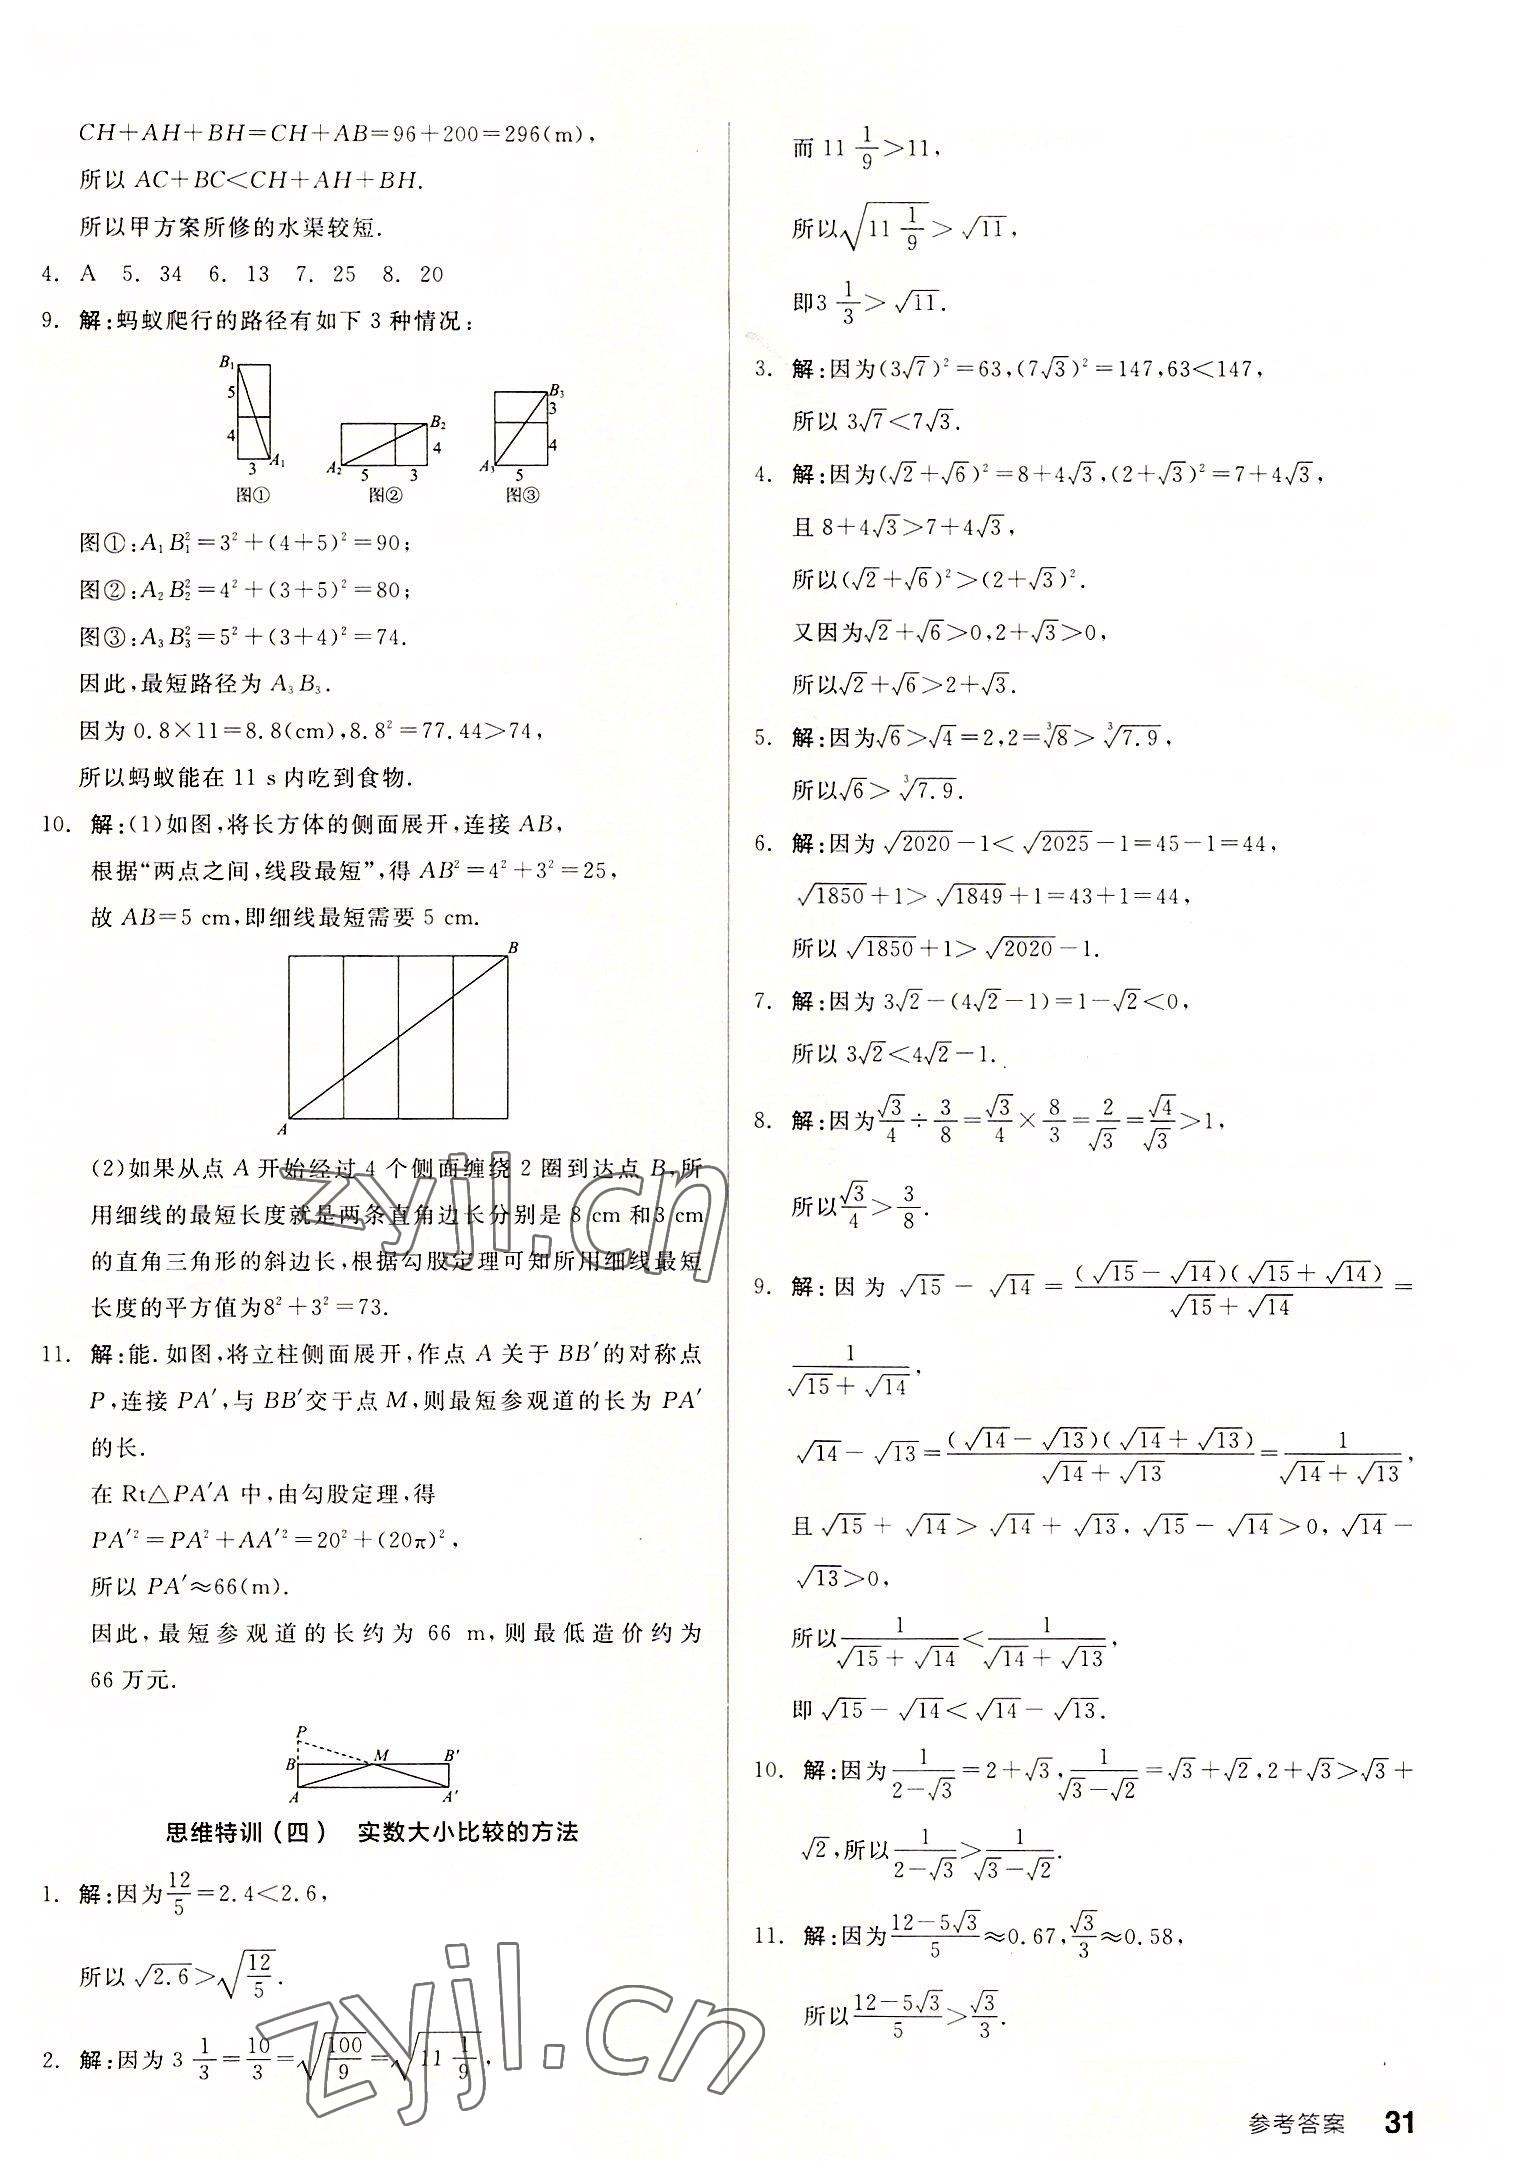 CH+AH+BH=CH+AB=96+200=296(m),
所以 AC+BC<CH+AH+BH.
所以甲方案所修的水渠较短.
4. A 5. 34 6. 13 7. 25 8. 20
9. 解:蚂蚁爬行的路径有如下 3 种情况:
B₁ 5 4 3 A₁ 图①
B₂ 4 A₂ 5 3 图②
B₃ 3 4 A₃ 5 图③
图①:A₁B₁²=3²+(4+5)²=90;
图②:A₂B₂²=4²+(3+5)²=80;
图③:A₃B₃²=5²+(3+4)²=74.
因此,最短路径为 A₃B₃.
因为 0.8×11=8.8(cm),8.8²=77.44>74,
所以蚂蚁能在 11 s 内吃到食物.
10. 解:(1)如图,将长方体的侧面展开,连接 AB,
根据“两点之间,线段最短”,得 AB²=4²+3²=25,
故 AB=5 cm,即细线最短需要 5 cm.
B
A
(2)如果从点 A 开始经过 4 个侧面缠绕 2 圈到达点 B,所
用细线的最短长度就是两条直角边长分别是 8 cm 和3 cm
的直角三角形的斜边长,根据勾股定理可知所用细线最短
长度的平方值为8²+3²=73.
11. 解:能.如图,将立柱侧面展开,作点 A 关于 BB′的对称点
P,连接 PA′,与 BB′交于点 M,则最短参观道的长为 PA′
的长.
在 Rt△PA′A 中,由勾股定理,得
PA′²=PA²+AA′²=20²+(20π)²,
所以 PA′≈66(m).
因此,最短参观道的长约为 66 m,则最低造价约为
66 万元.
P
B M B′
A A′
思维特训(四) 实数大小比较的方法
1. 解:因为12/5=2.4<2.6,
所以 √2.6>√(12/5).
2. 解:因为 3 1/3=10/3=√(100/9)=√(11 1/9),
而 11 1/9>11,
所以√(11 1/9)>√11,
即3 1/3>√11.
3. 解:因为(3√7)²=63,(7√3)²=147,63<147,
所以 3√7<7√3.
4. 解:因为(√2+√6)²=8+4√3,(2+√3)²=7+4√3,
且 8+4√3>7+4√3,
所以(√2+√6)²>(2+√3)².
又因为√2+√6>0,2+√3>0,
所以√2+√6>2+√3.
5. 解:因为√6>√4=2,2=³√8>³√7.9,
所以√6>³√7.9.
6. 解:因为 √2020-1<√2025-1=45-1=44,
√1850+1>√1849+1=43+1=44,
所以 √1850+1>√2020-1.
7. 解:因为 3√2-(4√2-1)=1-√2<0,
所以 3√2<4√2-1.
8. 解:因为√3/4÷3/8=√3/4×8/3=2/√3=√4/√3>1,
所以√3/4>3/8.
9. 解:因为 √15-√14=(√15-√14)(√15+√14)/(√15+√14)=
1/(√15+√14),
√14-√13=(√14-√13)(√14+√13)/(√14+√13)=1/(√14+√13),
且 √15+√14>√14+√13,√15-√14>0,√14-
√13>0,
所以1/(√15+√14)<1/(√14+√13),
即 √15-√14<√14-√13.
10. 解:因为1/(2-√3)=2+√3,1/(√3-√2)=√3+√2,2+√3>√3+
√2,所以1/(2-√3)>1/(√3-√2).
11. 解:因为(12-5√3)/5≈0.67,√3/3≈0.58,
所以(12-5√3)/5>√3/3.
zyjl.cn
zyjl.cn
参考答案 31